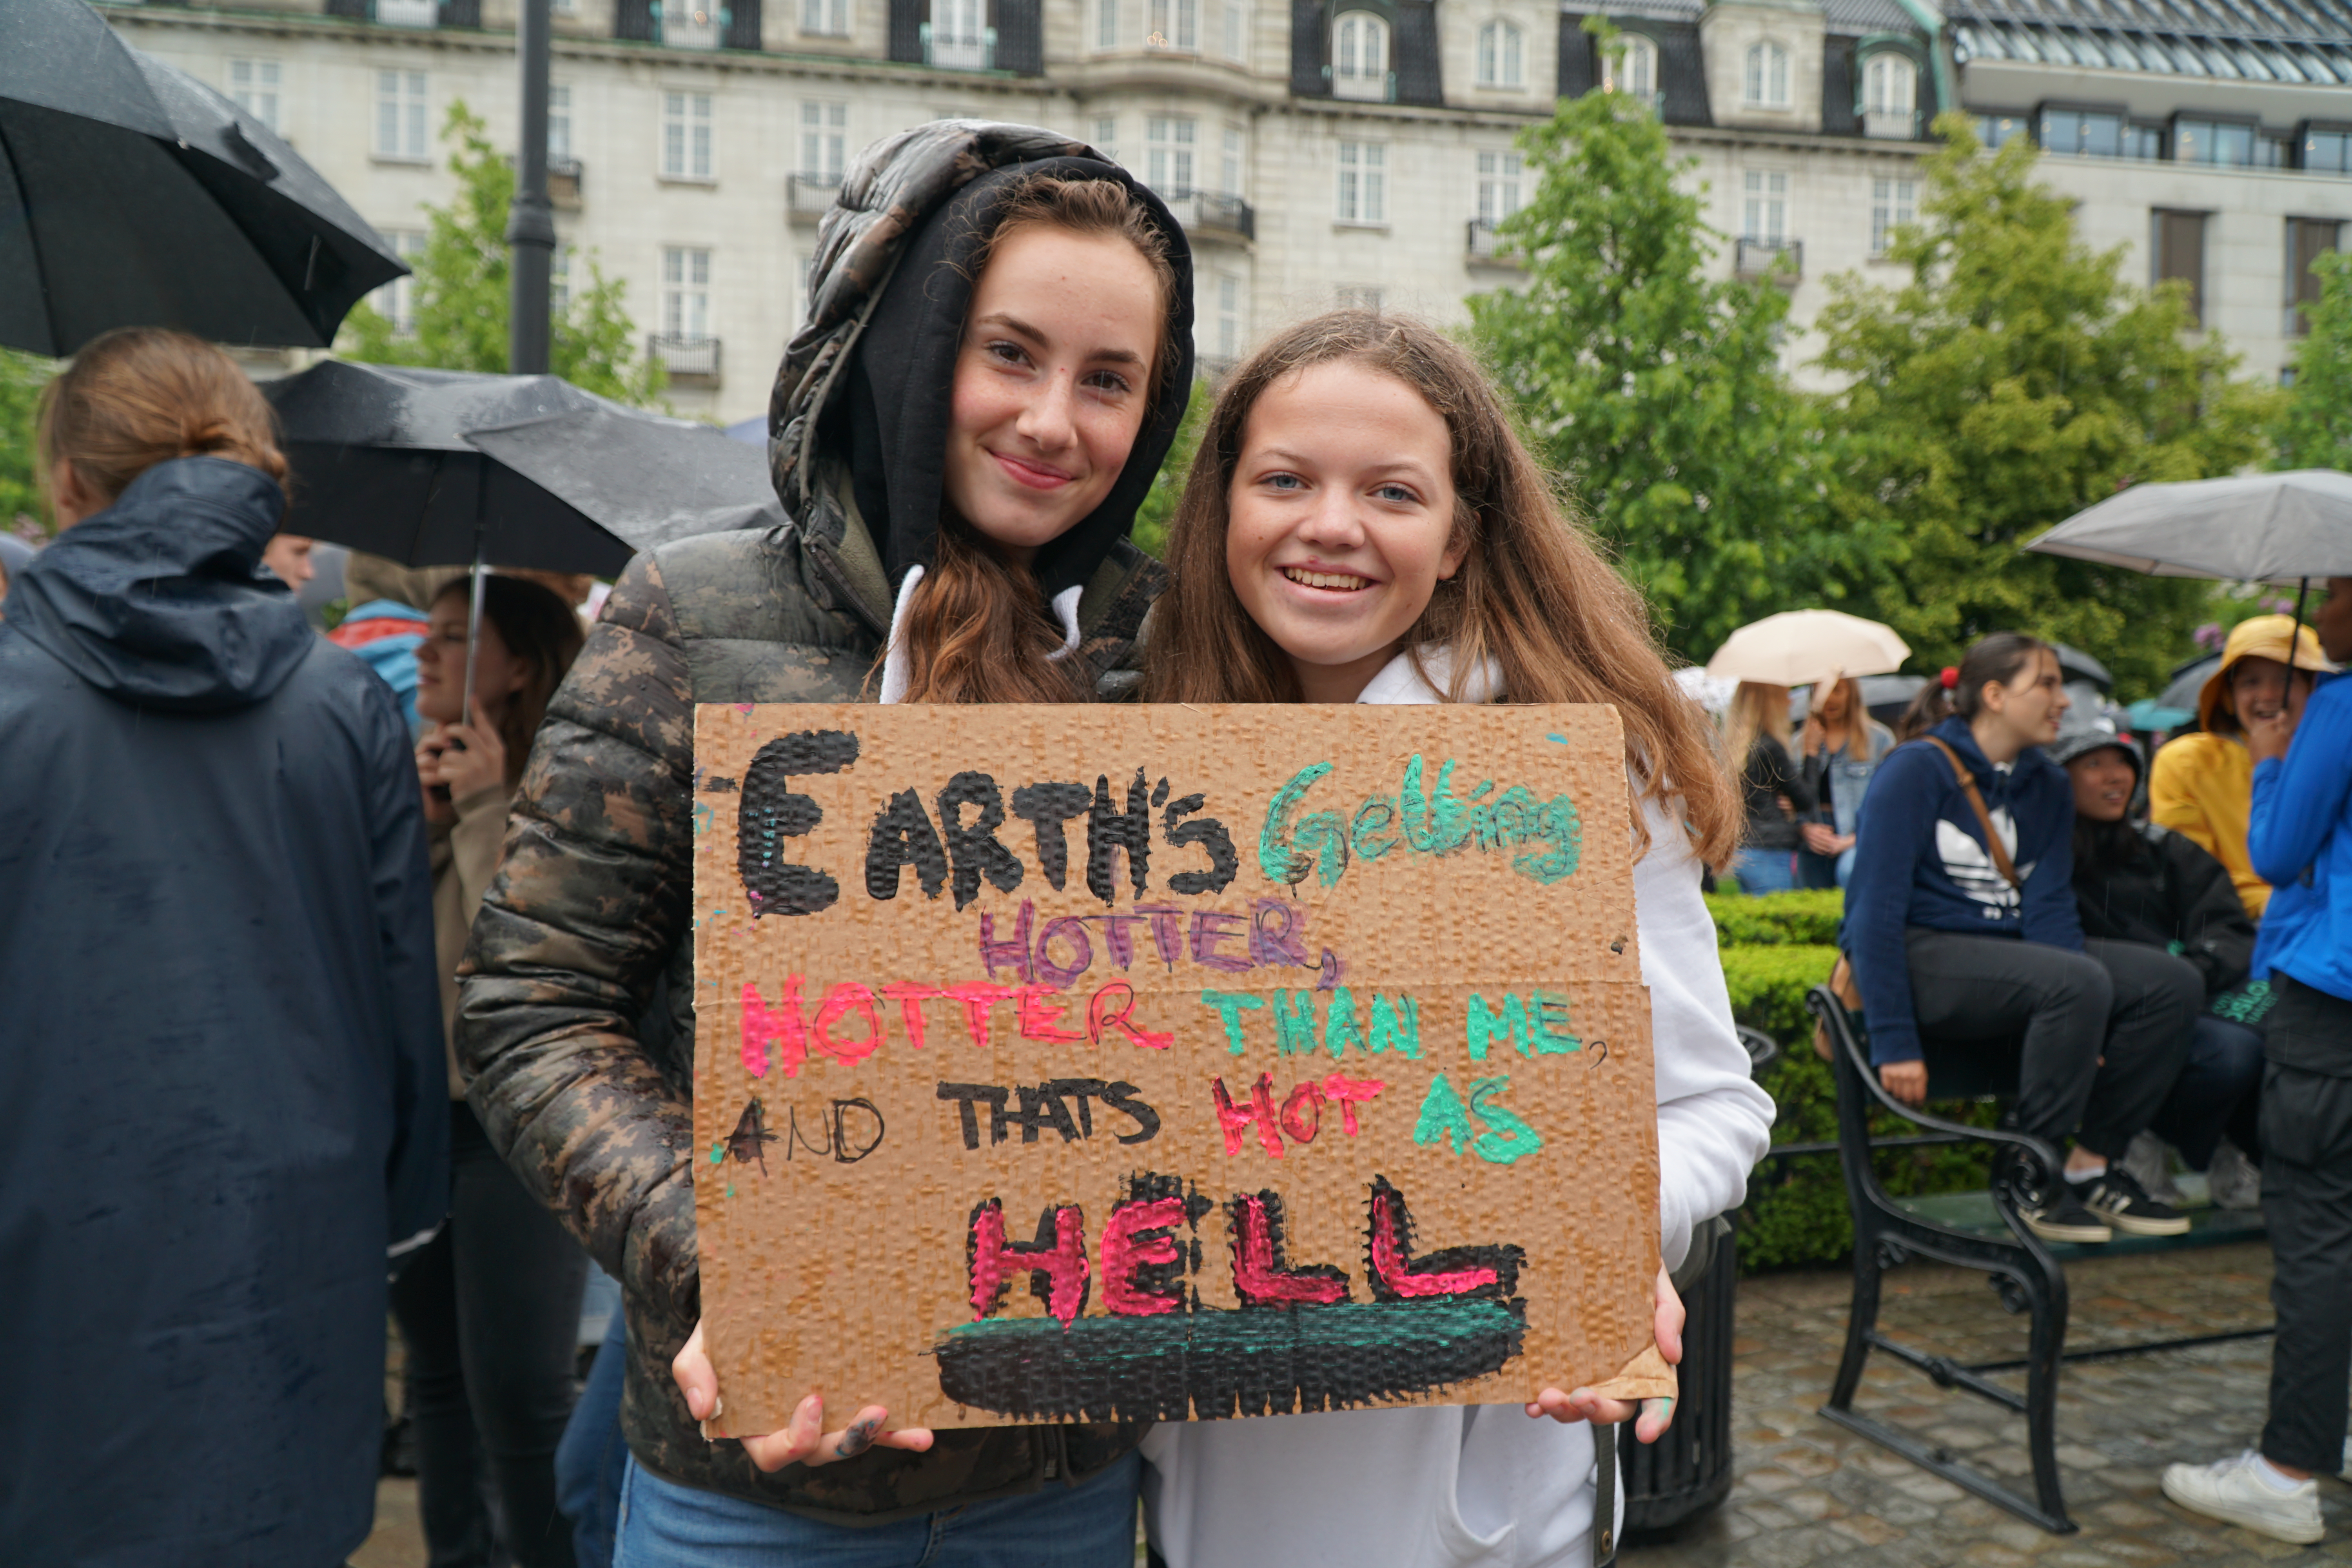 EARTH'S Getting
HOTTER,
HOTTER THAN ME,
AND THATS HOT AS
HELL